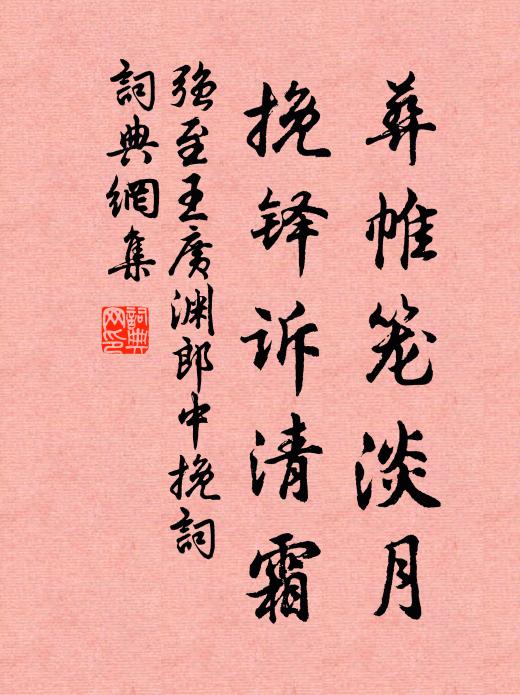 葬帷笼淡月
挽铎诉清霜
强至王廣渊郎中挽詞
詞典網集
詞典网印